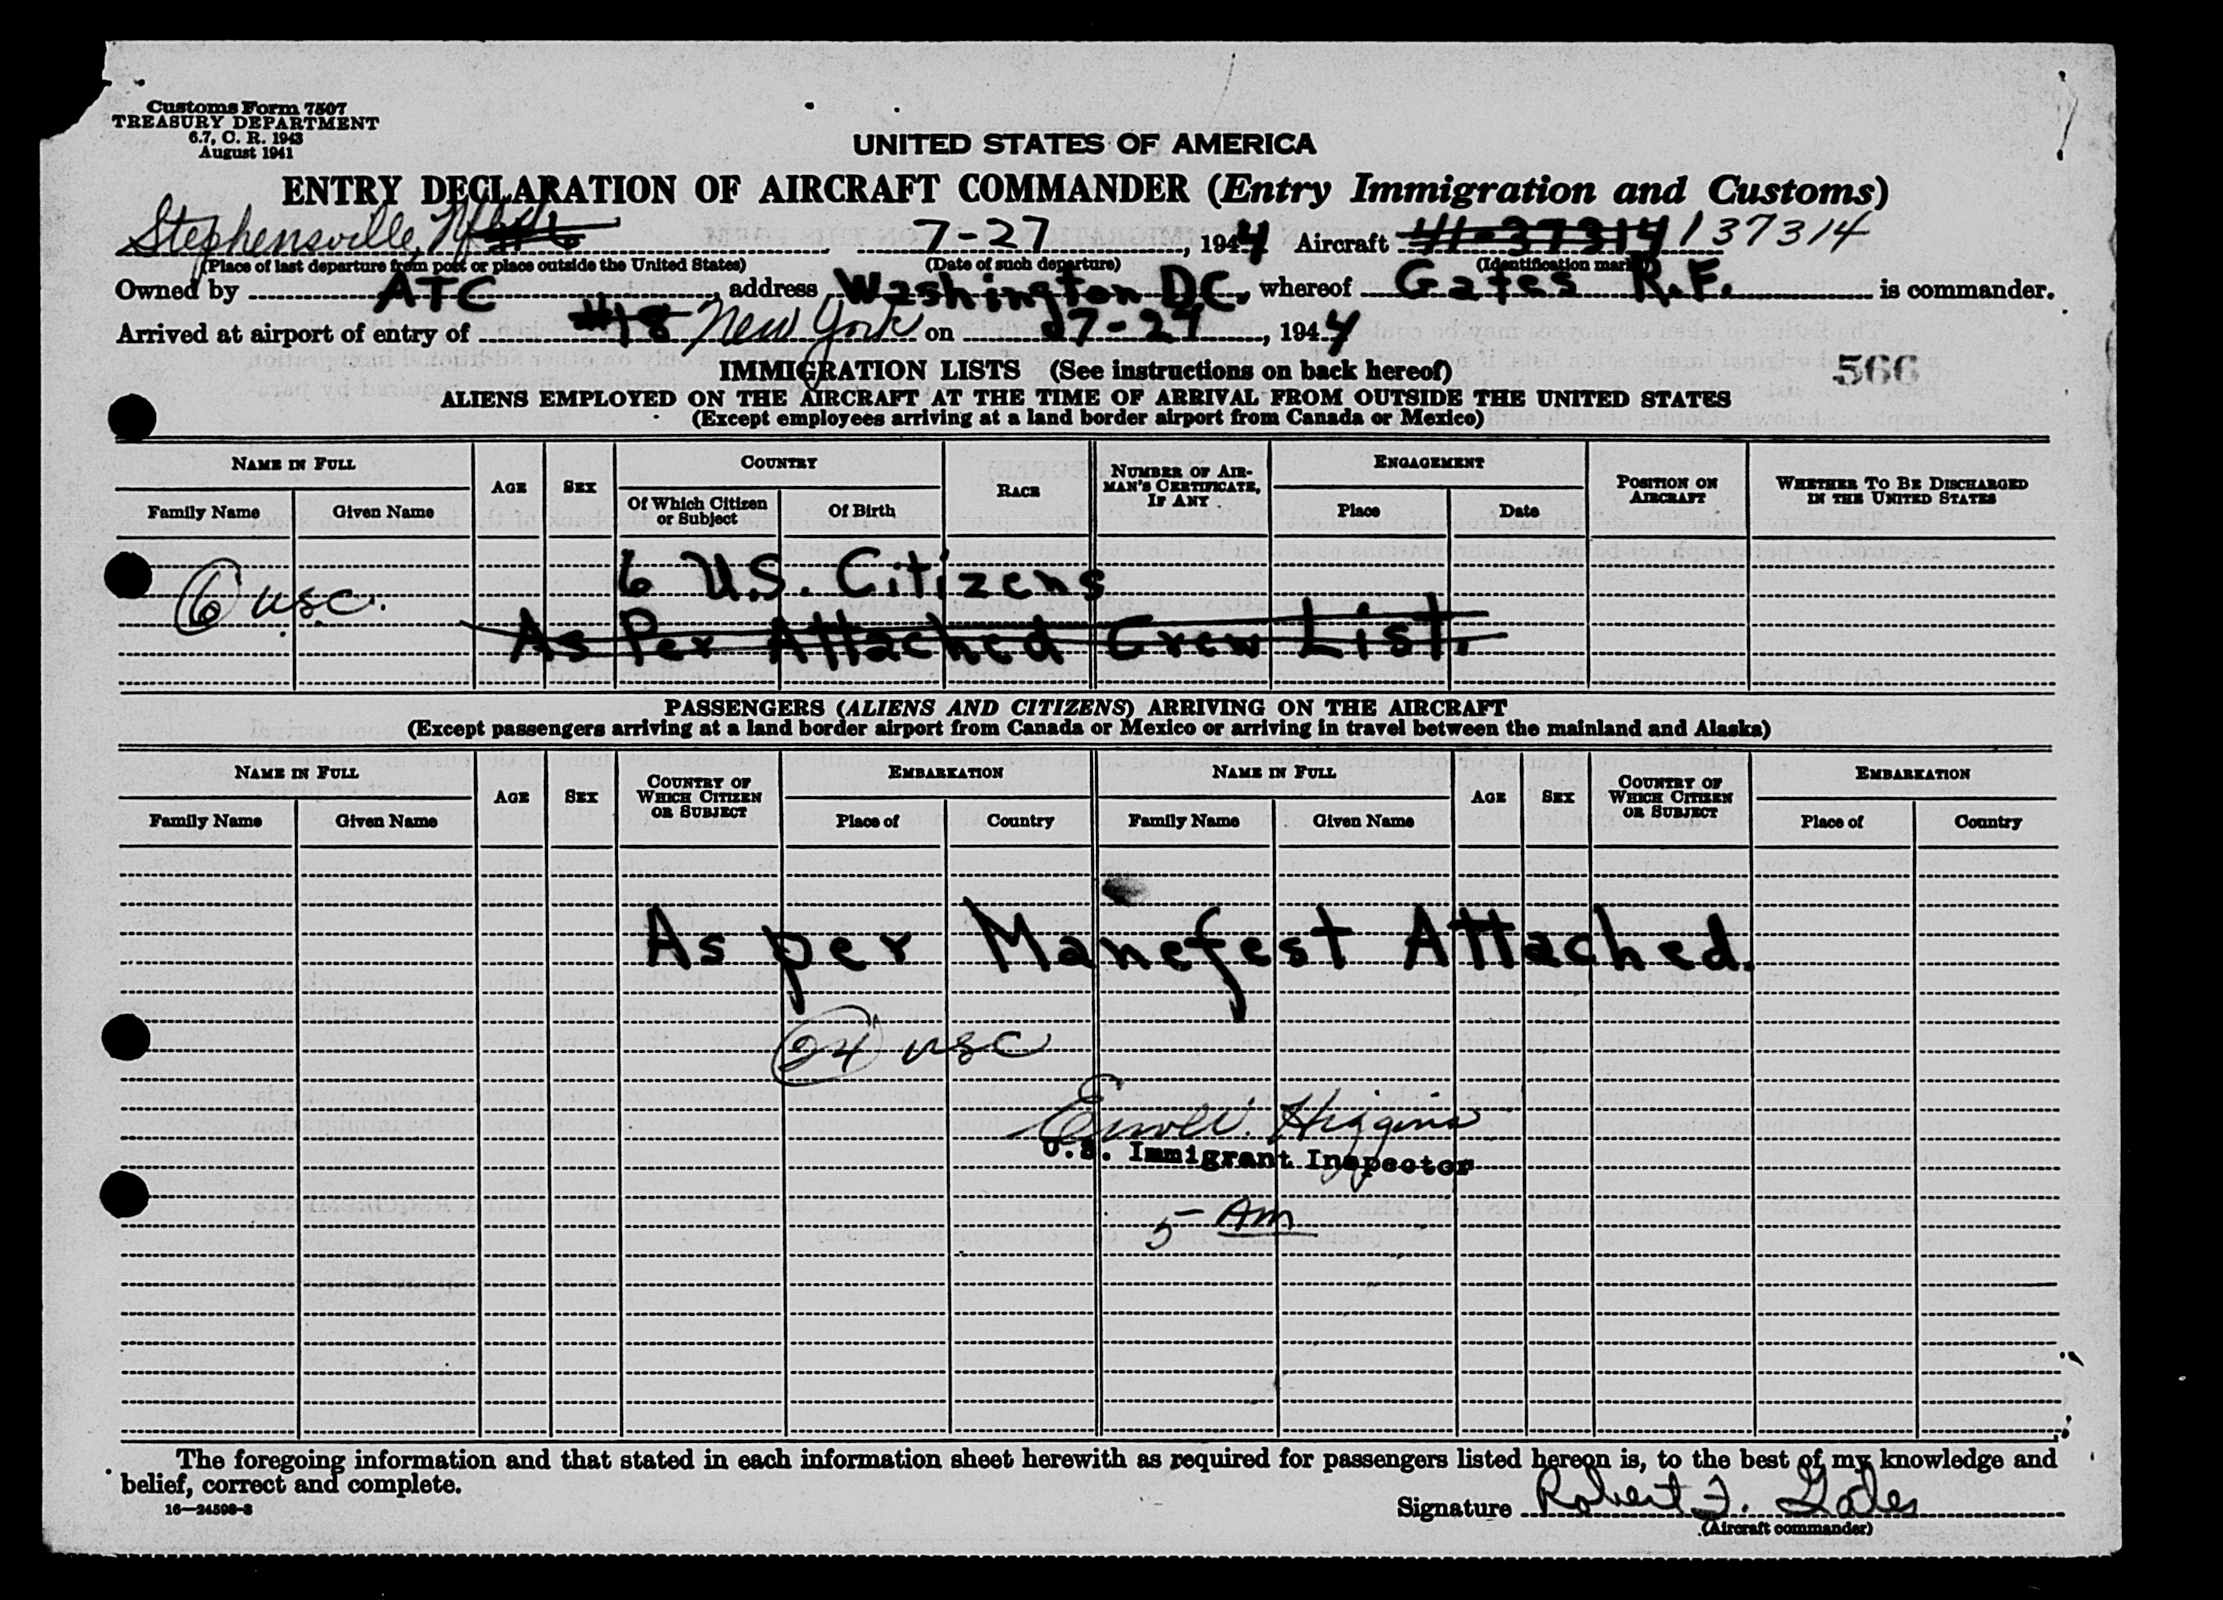 Customs Form 7507
TREASURY DEPARTMENT
6.7, C. R. 1943
August 1941
UNITED STATES OF AMERICA
ENTRY DECLARATION OF AIRCRAFT COMMANDER (Entry Immigration and Customs)
Stephensville, Nfld 7-27, 1944 Aircraft 41-37314 137314
(Place of last departure from port or place outside the United States) (Date of such departure) (Identification mark)
Owned by ATC, address Washington DC, whereof Gates R.F. is commander.
Arrived at airport of entry of #18 New York on 7-27, 1944
566
IMMIGRATION LISTS (See instructions on back hereof)
ALIENS EMPLOYED ON THE AIRCRAFT AT THE TIME OF ARRIVAL FROM OUTSIDE THE UNITED STATES
(Except employees arriving at a land border airport from Canada or Mexico)
NAME IN FULL AGE SEX COUNTRY RACE NUMBER OF AIRMAN'S CERTIFICATE, IF ANY ENGAGEMENT POSITION ON AIRCRAFT WHETHER TO BE DISCHARGED IN THE UNITED STATES
Family Name Given Name Of Which Citizen or Subject Of Birth Place Date
6 U.S. Citizens
6 usc.
As Per Attached Crew List.
PASSENGERS (ALIENS AND CITIZENS) ARRIVING ON THE AIRCRAFT
(Except passengers arriving at a land border airport from Canada or Mexico or arriving in travel between the mainland and Alaska)
NAME IN FULL AGE SEX COUNTRY OF WHICH CITIZEN OR SUBJECT EMBARKATION NAME IN FULL AGE SEX COUNTRY OF WHICH CITIZEN OR SUBJECT EMBARKATION
Family Name Given Name Place of Country Family Name Given Name Place of Country
As per Manefest Attached.
24 usc
Higgins
U.S. Immigrant Inspector
5 Am
The foregoing information and that stated in each information sheet herewith as required for passengers listed hereon is, to the best of my knowledge and
belief, correct and complete.
16—24598-3
Signature Robert F. Gates
(Aircraft commander)